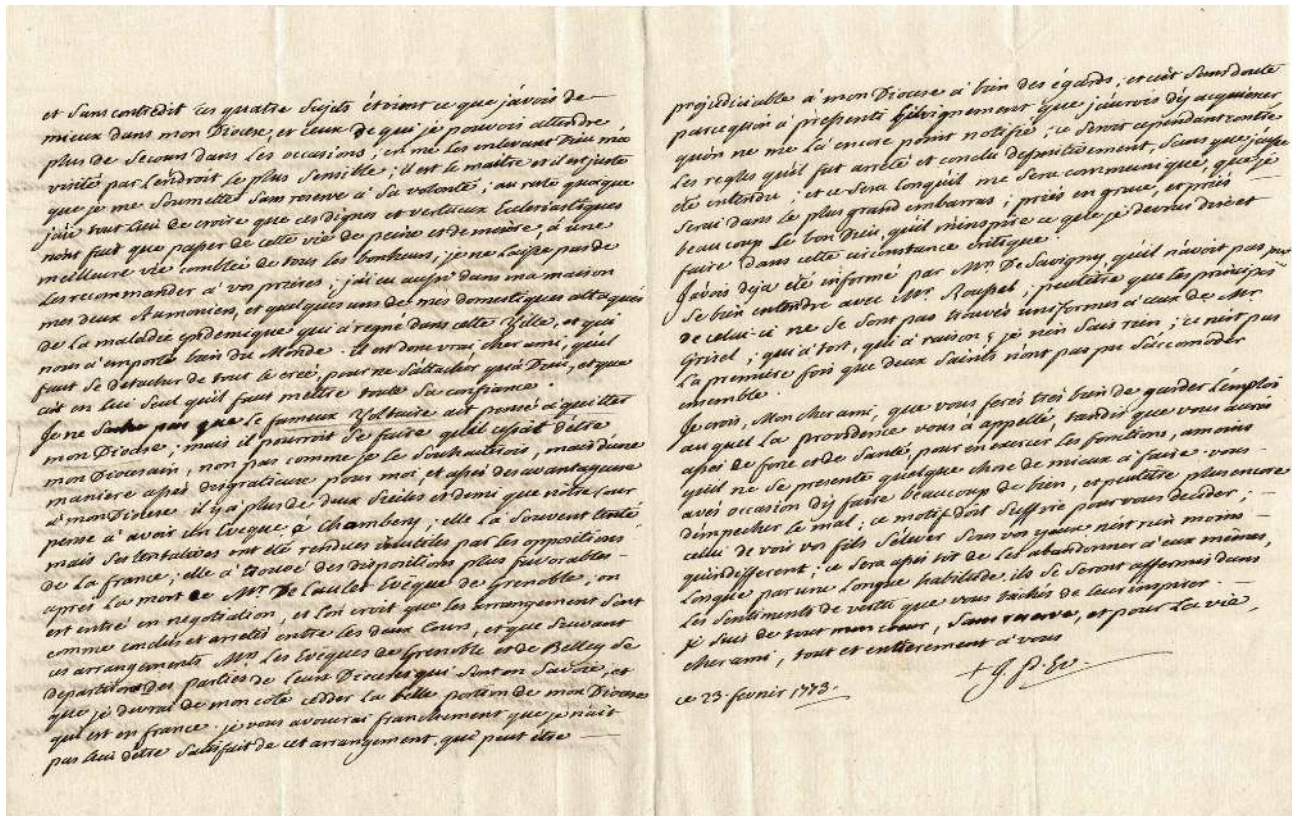 et sans contredit ces quatre sujets étoient ce que j'avois de
mieux dans mon Diocese, et ceux de qui je pouvois attendre
plus de secours dans les occasions; en me les enlevant Dieu m'a
visité par l'endroit le plus sensible; il est le maitre et il est juste
que je me soumette sans reserve à sa volonté; au reste quoique
j'aie tout lieu de croire que ces dignes et vertueux Ecclesiastiques
n'ont fait que passer de cette vie de peine et de misère, à une
meilleure vie comblée de tous les bonheurs, je ne laisse pas de
les recommander à vos prieres; j'ai eu aussi dans ma maison
mes deux Aumoniers, et quelques uns de mes domestiques attaqués
de la maladie epidemique qui a regné dans cette Ville, et qui
nous a emporté bien du Monde. il est donc vrai cher ami, qu'il
faut se detacher de tout le creé, pour ne s'attacher qu'à Dieu, et que
c'est en lui seul qu'il faut mettre toute sa confiance.
Je ne sache pas que le fameux Voltaire ait pensé à quitter
mon Diocese; mais il pourroit se faire qu'il cessât d'être
mon Diocesain, non pas comme je le souhaiterois, mais d'une
maniere assés desgratieuse pour moi, et assés desavantageuse
à mon Diocese. il y a plus de deux siècles et demi que nôtre Cour
pense à avoir un Evêque à Chambery; elle l'a souvent tenté
mais ses tentatives ont été rendues inutiles par les oppositions
de la france; elle à trouvé des dispositions plus favorables
après la mort de Mr. De Caulet Evêque de Grenoble; on
est entré en negotiation, et l'on croit que les arrangement sont
comme conclus et arretés entre les deux Cours, et que suivant
ces arrangements Mrs. les Evêques de Grenoble et de Belley se
departiront des parties de leurs Dioceses qui sont en Savoie, et
que je devrai de mon coté cedder la belle portion de mon Diocese
qui est en france. je vous avouerai franchement que je n'ait
pas lieu d'être satisfait de cet arrangement, qui peut être
prejudiciable à mon Diocese à bien des égards; et c'est sans doute
qu'on ne me l'a encore point notifié; ce seroit cependant contre
les regles qu'il fut arreté et conclu definitivement, sans que j'eusse
été entendu; et ce sera lorsqu'il me sera communiqué, que je
serai dans le plus grand embarras; priés en grace, et priés
beaucoup le bon Dieu, qu'il m'inspire ce que je devrai dire et
faire dans cette circonstance critique.
J'avois deja été informé par Mr. De Savigny, qu'il n'avoit pas pu
se bien entendre avec Mr. Roussel; peutêtre que les principes
de celui-ci ne se sont pas trouvés uniformes à ceux de Mr.
Grisel; qui a tort, qui a raison? je n'en sais rien; ce n'est pas
la premiere fois que deux Saints n'ont pas pu s'accomoder
ensemble.
Je crois, Mon cher ami, que vous ferés très bien de garder l'emploi
au quel la providence vous à appellé, tandis que vous aurés
assés de force et de santé, pour en exercer les fonctions, amoins
qu'il ne se presente quelque chose de mieux à faire. vous
avés occasion d'y faire beaucoup de bien, et peutêtre plus encore
d'empecher le mal; ce motif doit suffire pour vous decider;
celui de voir vos fils s'élever sous vos yeux n'est rien moins
qu'indifferent; ce sera assés tôt de les abandonner à eux mêmes,
lorsque par une longue habitude ils se seront affermis dans
les sentiments de vertu que vous tachés de leur inspirer.
Je suis de tout mon cœur, sans reserve, et pour la vie,
cher ami, tout et entièrement à vous
+ J. P. Ev.
ce 23. fevrier 1773.